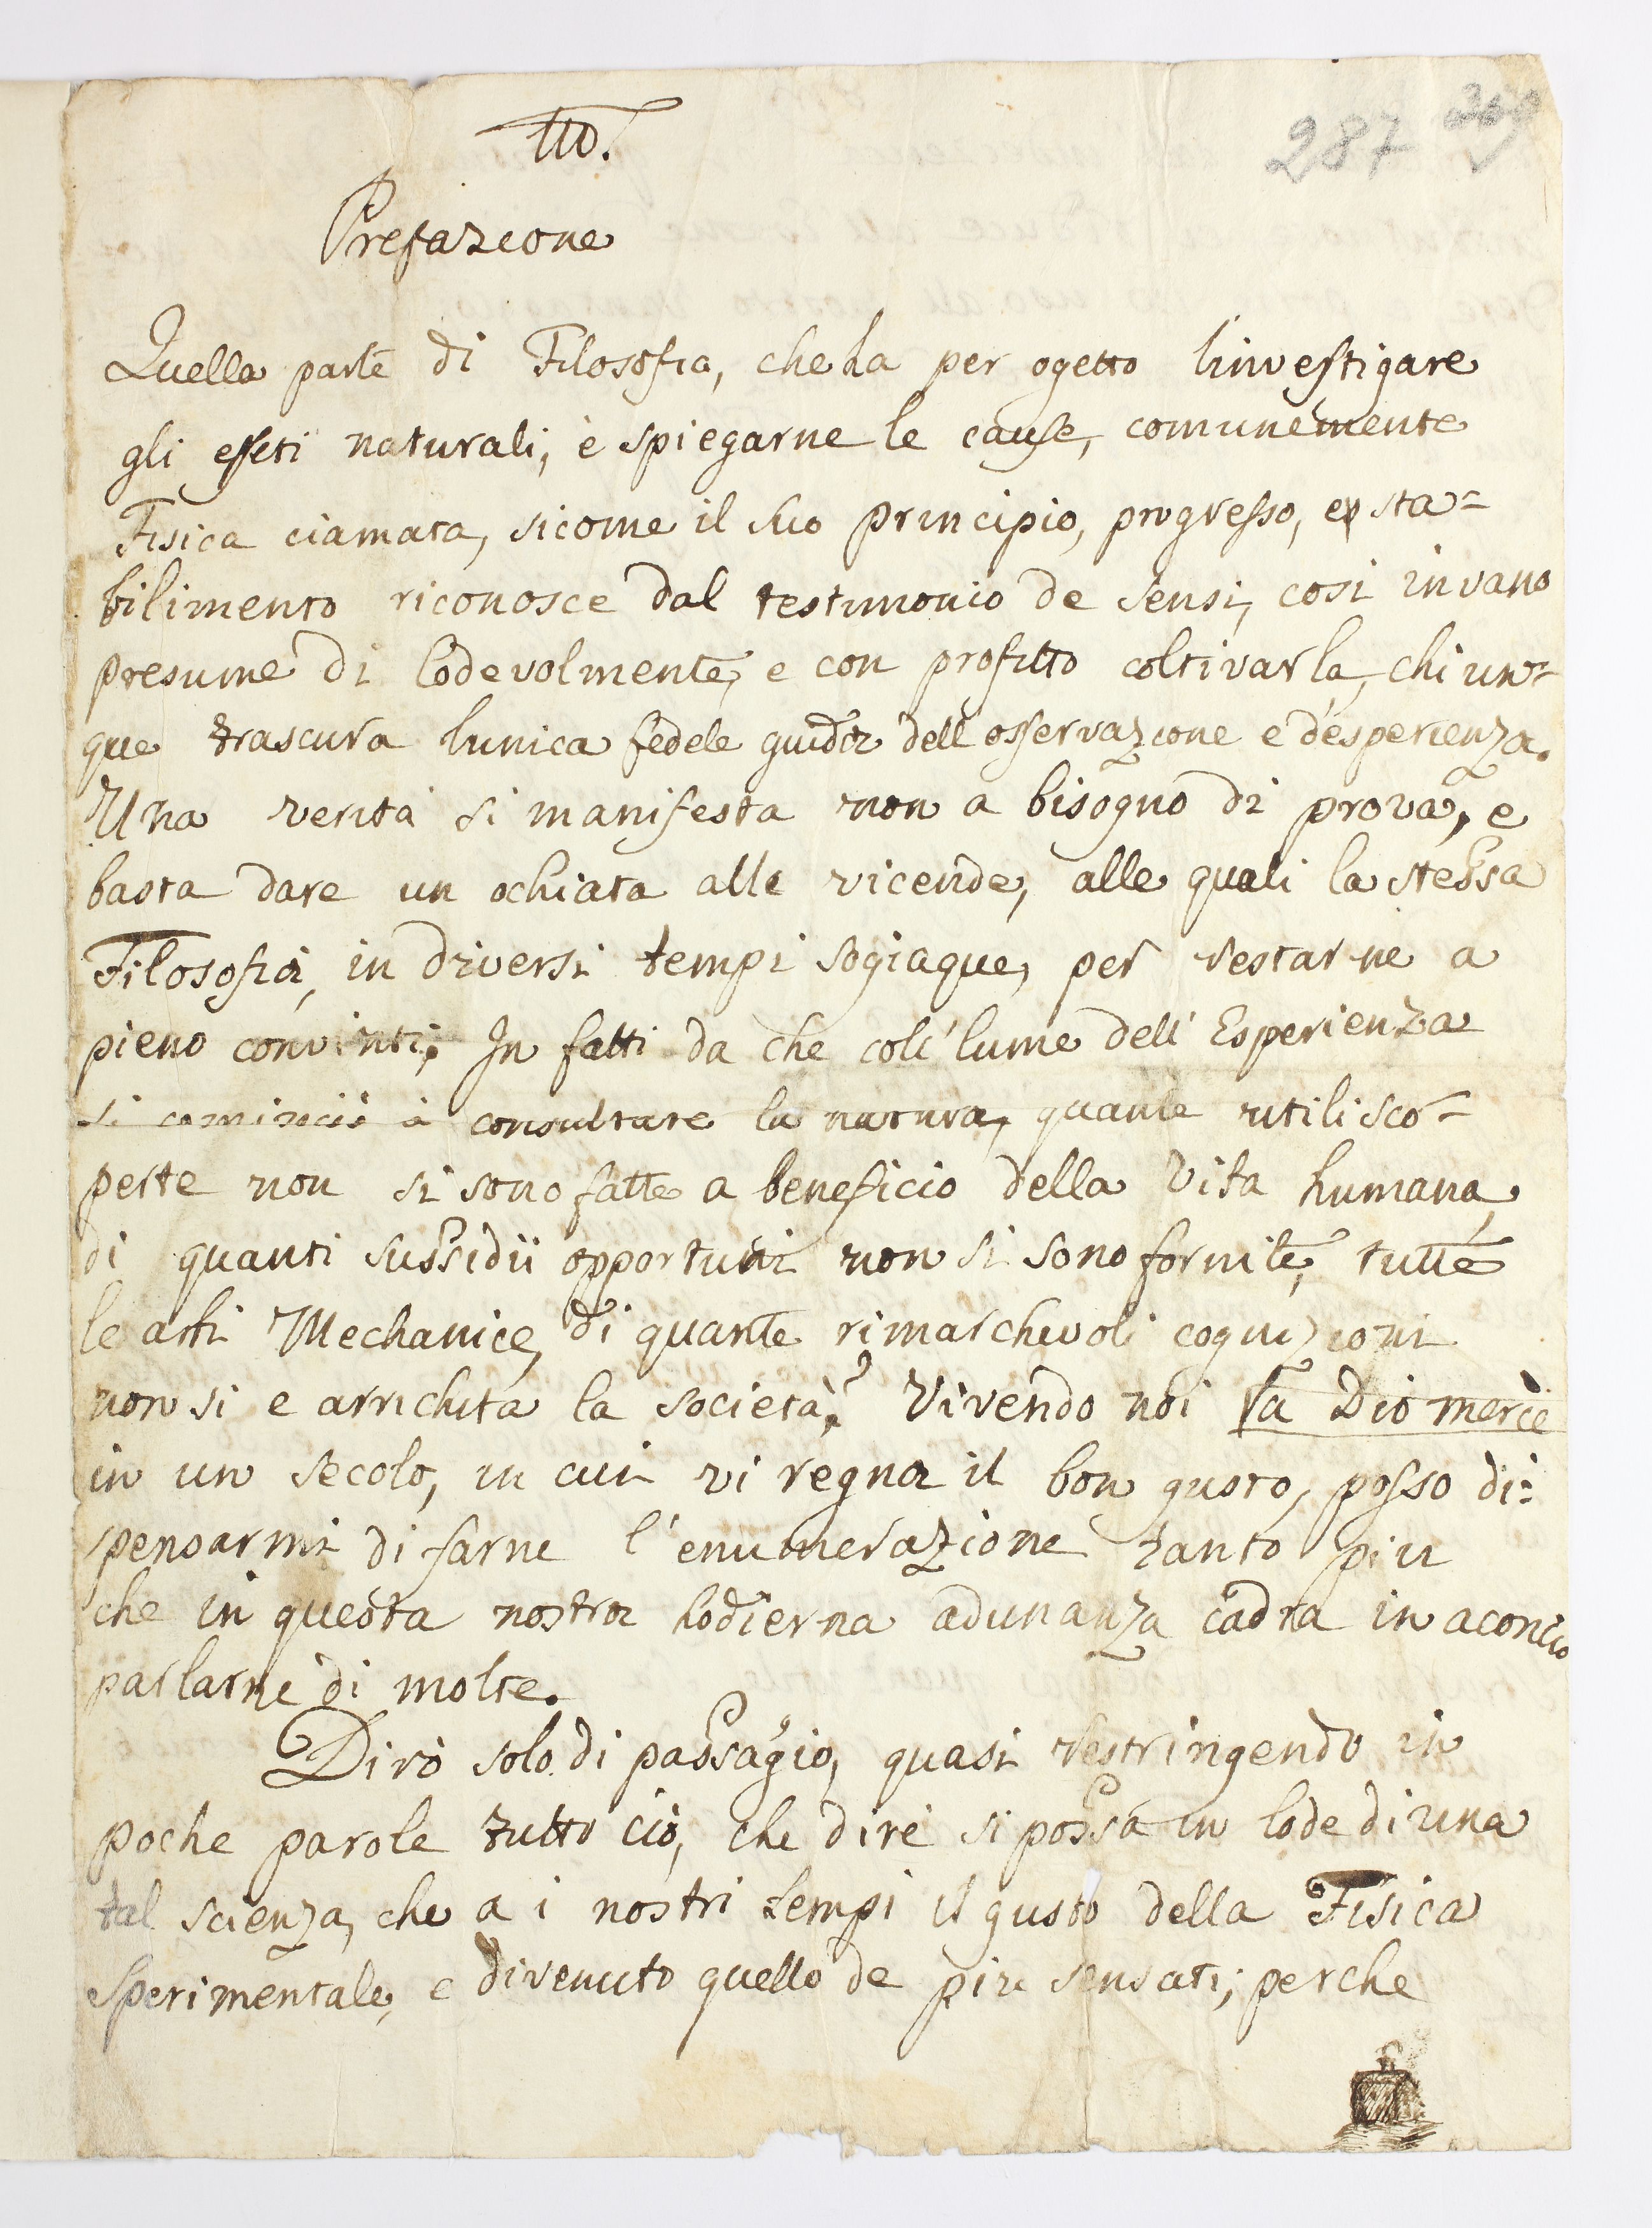 287 309
Prefazione
Quella parte di Filosofia, che ha per ogetto linvestigare
gli effeti naturali, e spiegarne le cause, comunemente
Fisica ciamata, sicome il suo principio, progresso, e sta=
bilimento riconosce dal testimonio de sensi, cosi in vano
presume di lodevolmente, e con profitto coltivarla, chiun=
que trascura lunica fedele guida dell osservazione e d'esperienza.
Una verita si manifesta non a bisogno di prova, e
basta dare un ochiata alle vicende, alle quali la stessa
Filosofia, in diversi tempi sogiaque, per restarne a
pieno convinti; In fatti da che coll' lume dell' Esperienza
si cominciò a consultare la natura, quante utili sco=
perte non si sono fatte a beneficio della vita humana,
di quanti sussidii opportuni non si sono fornite, tutte
le arti Mechanice, di quante rimarchevoli cognizioni
non si e arrichita la società? Vivendo noi la Dio mercè
in un secolo, in cui vi regna il bon gusto, posso di=
spensarmi di farne l'enumerazione tanto piu
che in questa nostra hodierna adunanza cadra in aconcio
parlarne di molte.
Dirò solo di passagio, quasi restringendo in
poche parole tutto ciò, che dire si possa in lode di una
tal scienza, che a i nostri tempi il gusto della Fisica
sperimentale, e divenuto quello de piu sensati; perche